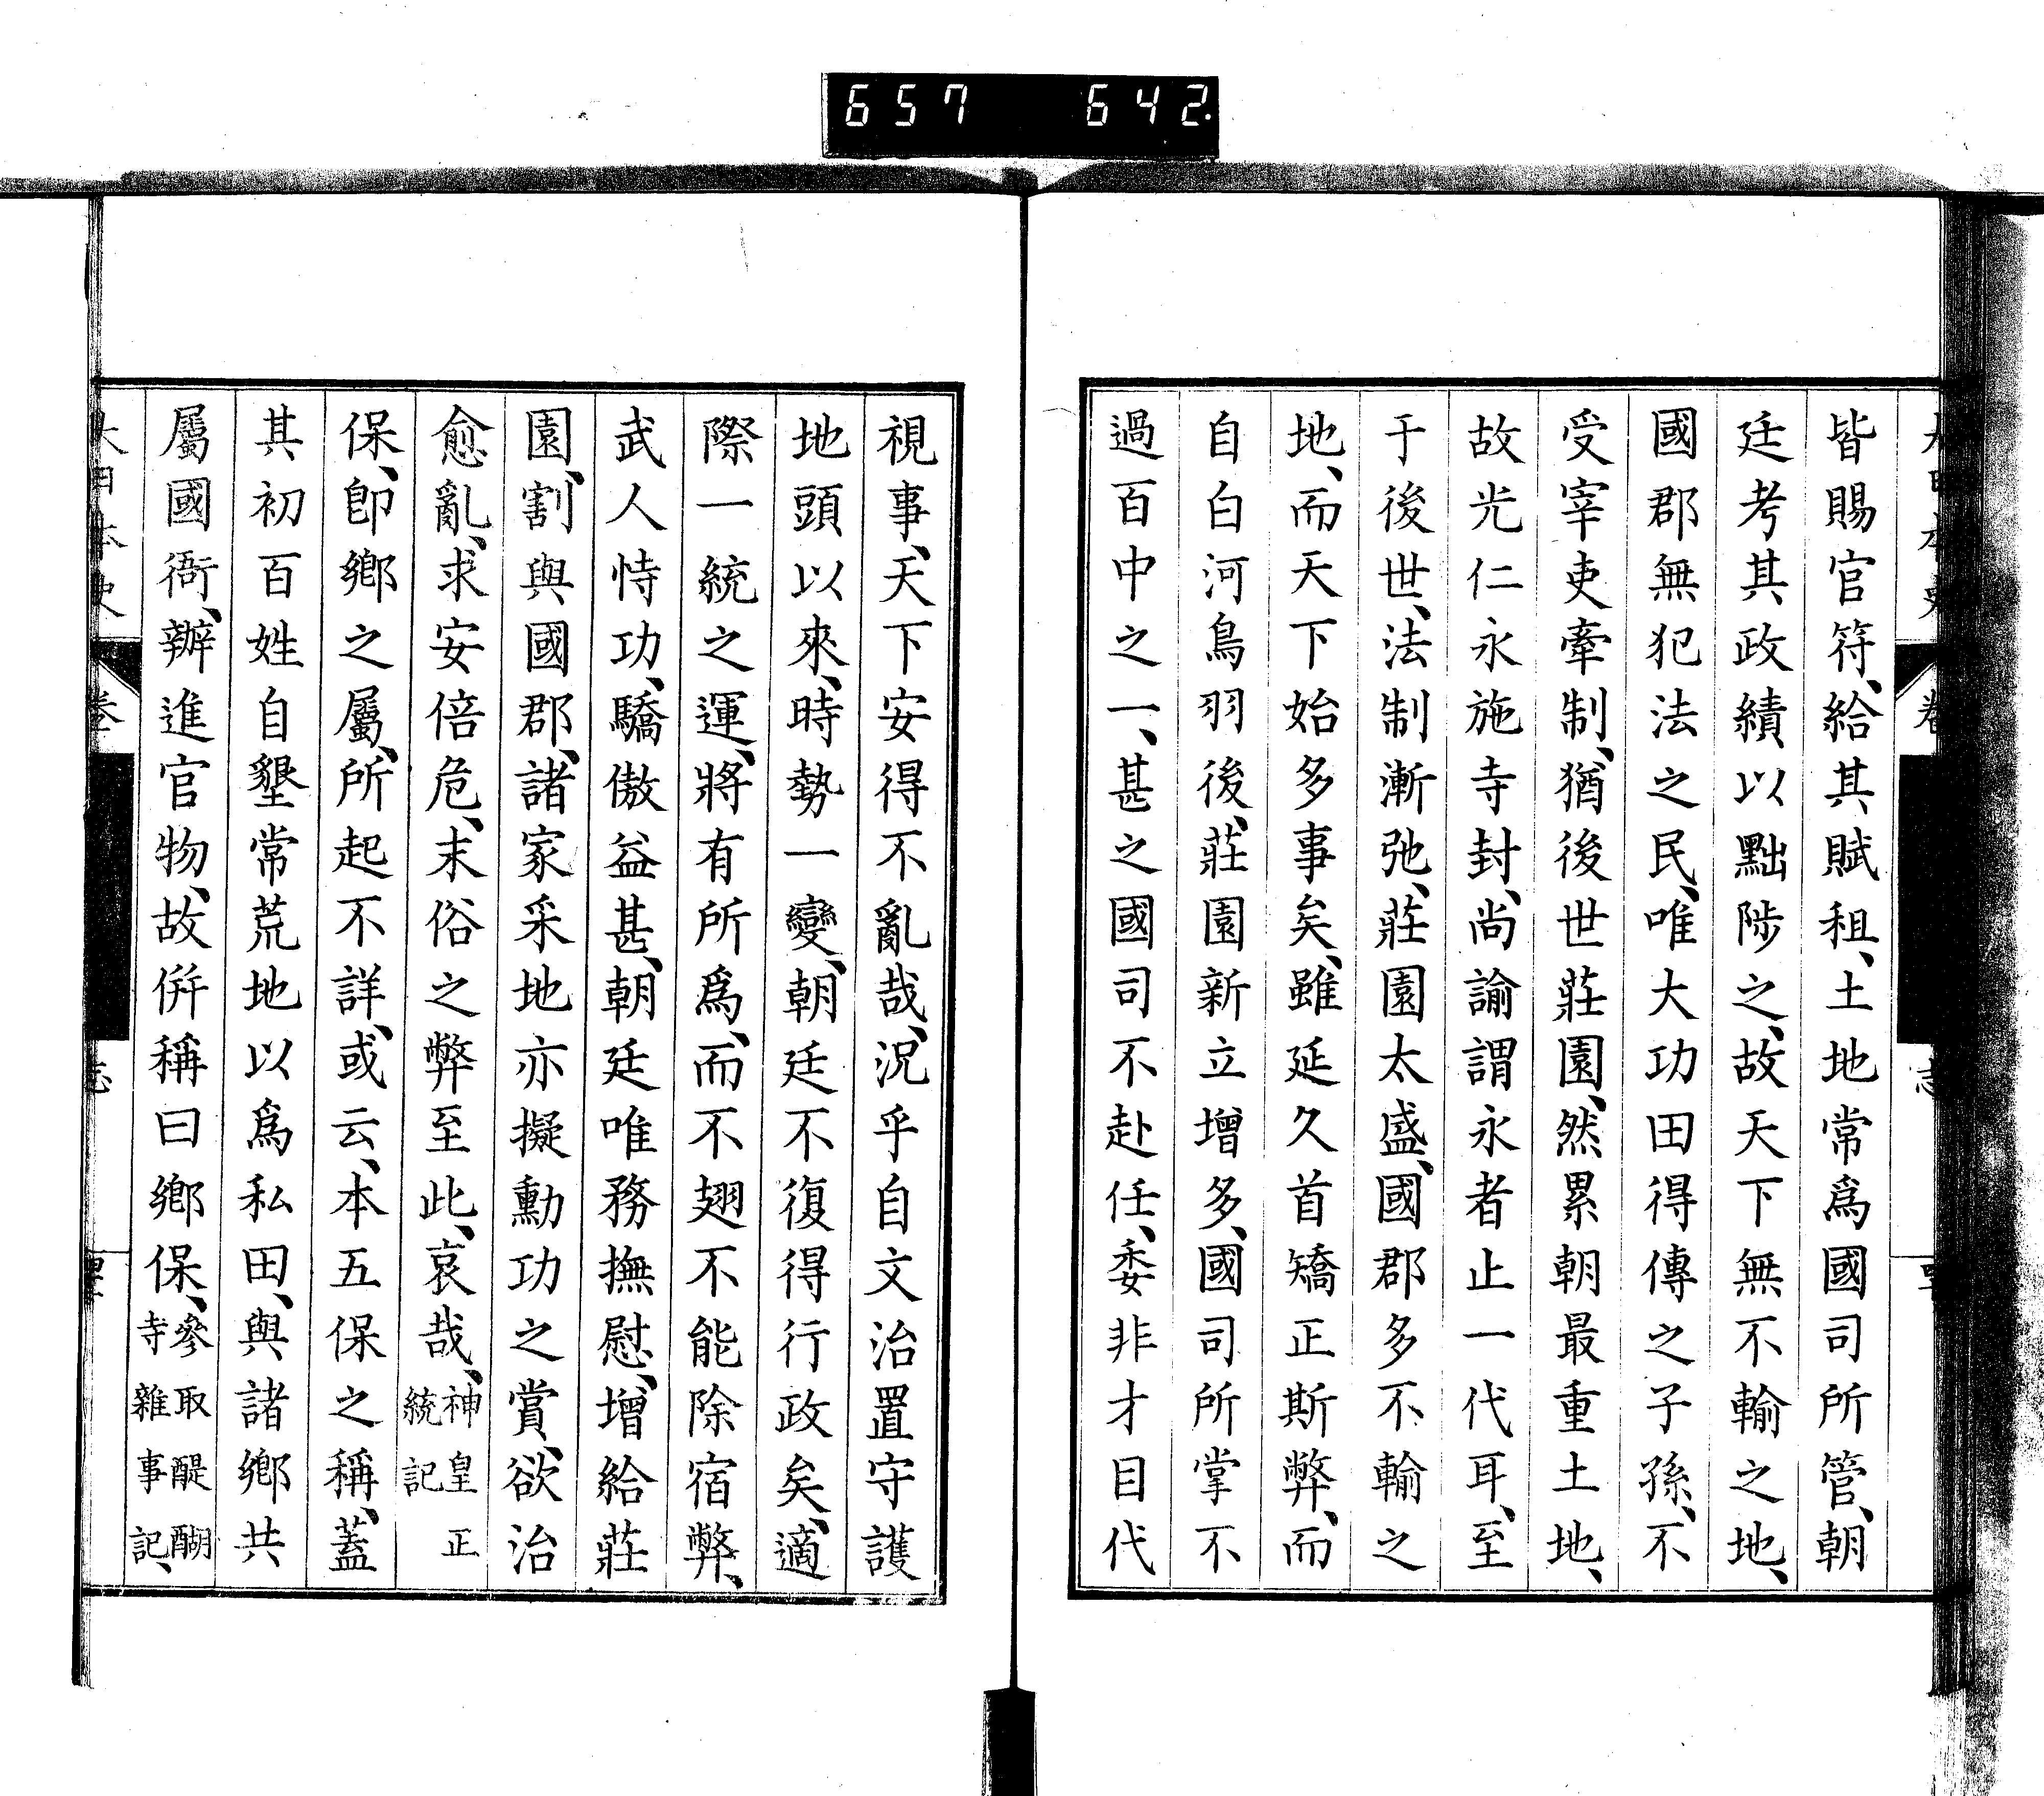 657 642
皆賜官符、給其賦租、土地常爲國司所管、朝
廷考其政績以黜陟之、故天下無不輸之地、
國郡無犯法之民、唯大功田得傳之子孫、不
受宰吏牽制、猶後世莊園、然累朝最重土地、
故光仁永施寺封、尚諭謂永者止一代耳、至
于後世、法制漸弛、莊園太盛、國郡多不輸之
地、而天下始多事矣、雖延久首矯正斯弊、而
自白河鳥羽後、莊園新立增多、國司所掌不
過百中之一、甚之國司不赴任、委非才目代
視事、天下安得不亂哉、況乎自文治置守護
地頭以來、時勢一變、朝廷不復得行政矣、適
際一統之運、將有所爲、而不翅不能除宿弊、
武人恃功、驕傲益甚、朝廷唯務撫慰、增給莊
園、割與國郡、諸家采地亦擬勳功之賞、欲治
愈亂、求安倍危、末俗之弊至此、哀哉、神皇正
統記
保、卽鄉之屬、所起不詳、或云、本五保之稱、蓋
其初百姓自墾常荒地以爲私田、與諸鄉共
屬國衙、辦進官物、故倂稱曰鄉保、參取醍醐
寺雜事記、
大日本史 卷 志